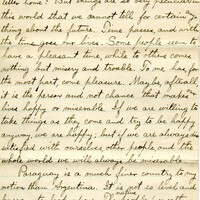 letter home? But things are so very peculiar in
this world that we cannot tell for certain any-
thing about the future. Time passes, and with
the time goes our lives. Some people seem to
have a pleasant time, while to others comes
nothing but misery and trouble. To me has, for
the most part, come pleasure. Maybe, after all
it is the person and not chance that makes
lives happy or miserable. If we are willing to
take things as they come and try to be happy
anyway, we are happy; but if we are always dis-
satisfied with ourselves other people and the
whole world we will always be miserable.
Paraguay is a much finer country to my
notion than Argentina. It is not so level and
native